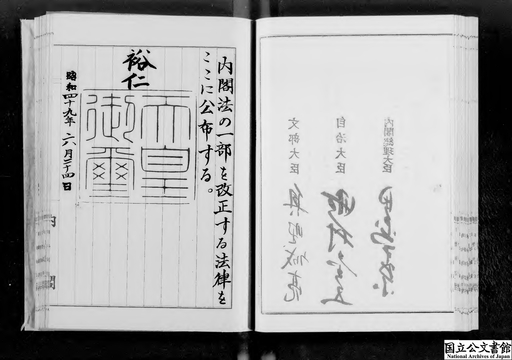 内閣総理大臣
自治大臣
文部大臣
内閣法の一部を改正する法律を
ここに公布する。
裕仁
天皇
御璽
昭和四十九年六月二十四日
内閣
国立公文書館
National Archives of Japan